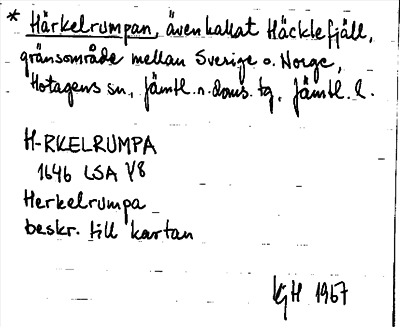 * Härkelrumpan, även kallat Häcklefjäll,
gränsområde mellan Sverige o. Norge,
Hotagens sn, Jämtl. n. doms. tg, Jämtl. l.
H-RKELRUMPA
1646 LSA V8
Herkelrumpa
beskr. till kartan
KGH 1967